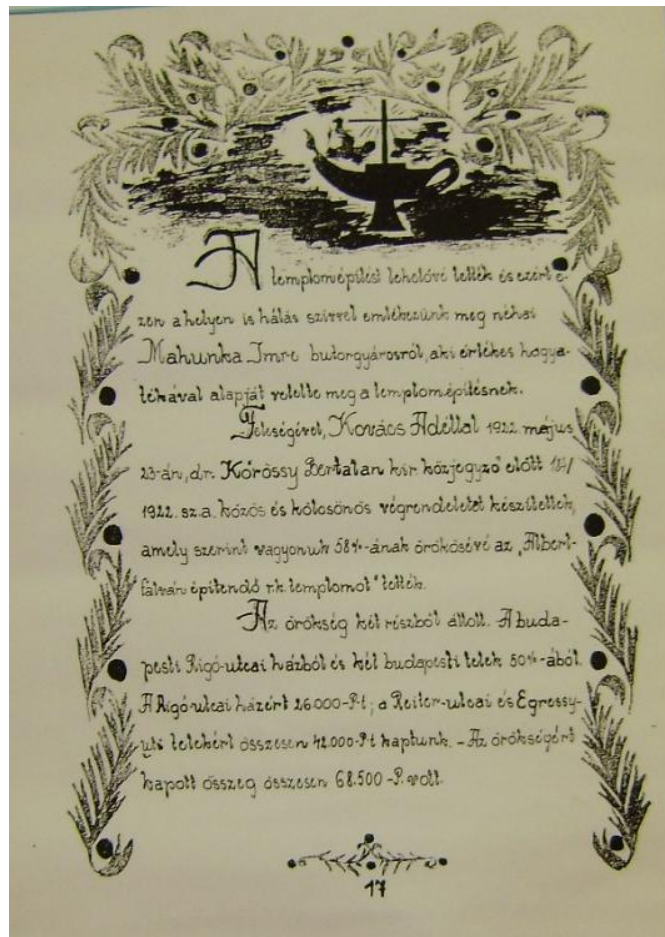 A templomépitést lehetővé tették és ezért e-
zen a helyen is hálás szivvel emlékezünk meg néhai
Mahunka Imre butorgyárosról, aki értékes hagya-
tékával alapját vetette meg a templomépitésnek.
Feleségével, Kovács Adéllal 1922. május
23-án, dr. Kőrössy Bertalan kir. közjegyző előtt
1922. sz. a. közös és kölcsönös végrendeletet készitettek,
amely szerint vagyonuk 58%-ának örökösévé az „Albert-
falván épitendő r.k. templomot" tették.
Az örökség két részből állott. A buda-
pesti Rigó-utcai házból és két budapesti telek 50%-ából.
A Rigó-utcai házért 26.000-P-t; a Reiter-utcai és Egressy-
uti telekért összesen 42.000-P-t kaptunk. - Az örökségért
kapott összeg összesen 68.500-P. volt.
17